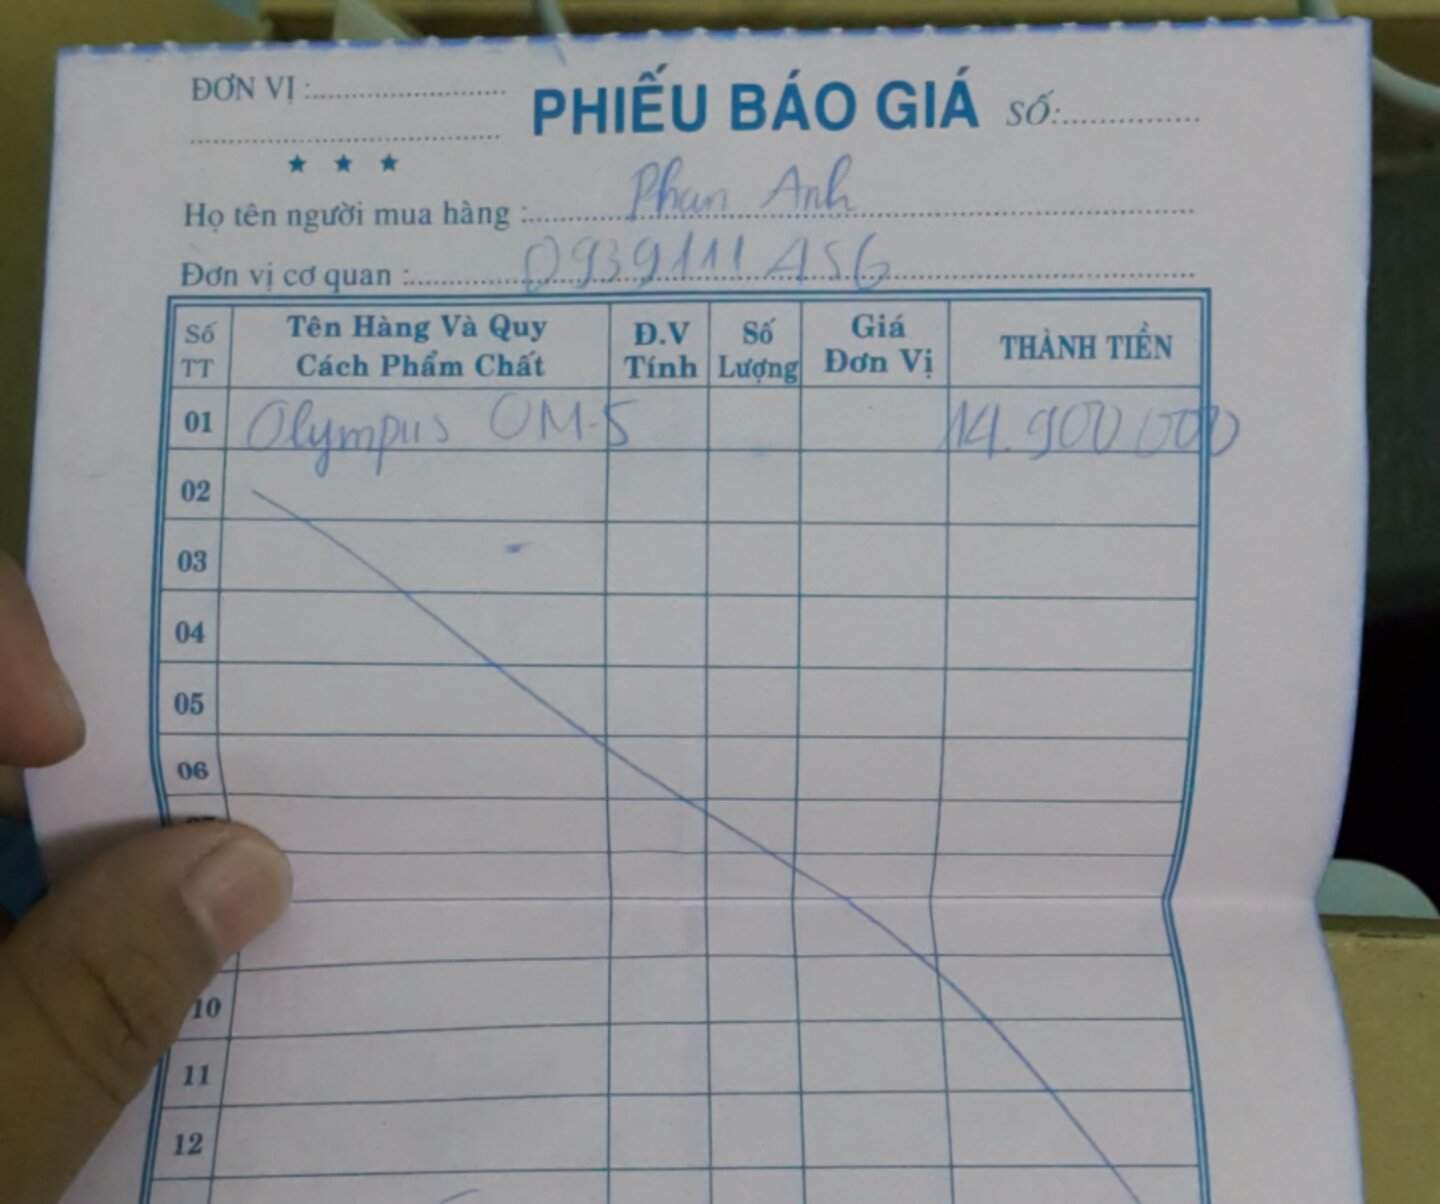 ĐƠN VỊ :
PHIẾU BÁO GIÁ SỐ:
Họ tên người mua hàng : Phan Anh
Đơn vị cơ quan : 0939111 456
Số TT Tên Hàng Và Quy Cách Phẩm Chất Đ.V Tính Số Lượng Giá Đơn Vị THÀNH TIỀN
01 Olympus OM-5 14.900 000
02
03
04
05
06
10
11
12